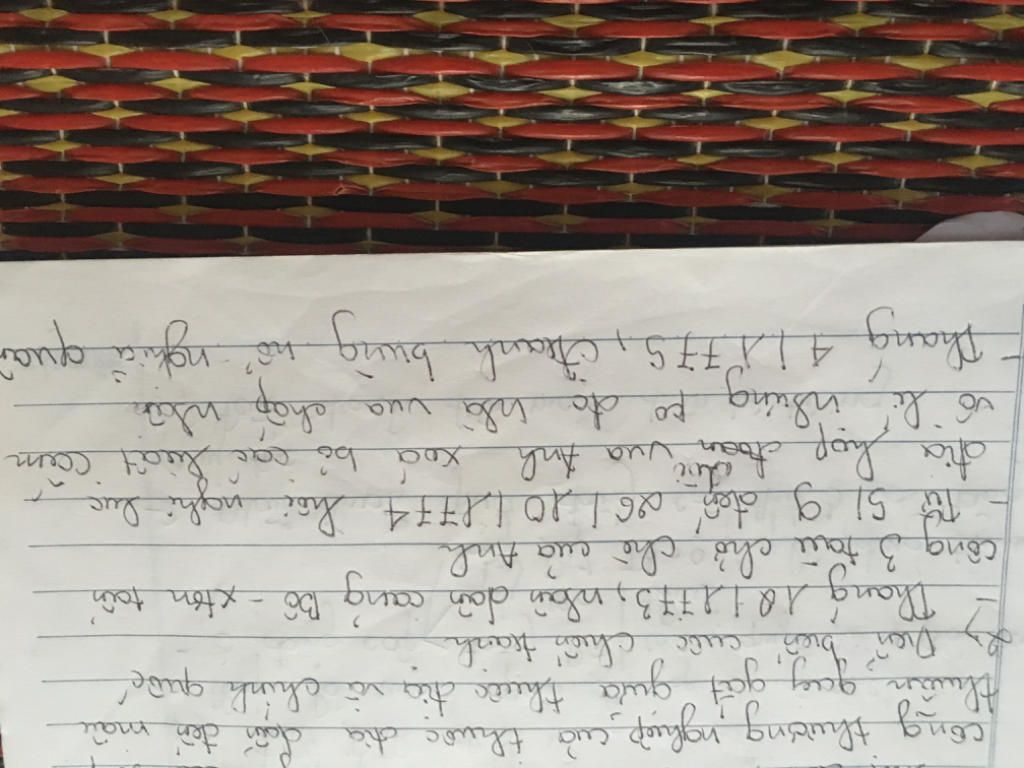 công thương nghiệp của thuộc địa dẫn đến mâu
thuẫn gay gắt giữa thuộc địa và chính quốc
2, Diễn biến cuộc chiến tranh
- Tháng 12/1773, nhân dân cảng Bô-xtơn tấn
công 3 tàu chở chè của Anh
- Từ 5/9 đến 26/10/1774 hội nghị lục
địa họp đòi vua Anh xoá bỏ các luật cấm
vô lí nhưng ko đc nhà vua chấp nhận
- Tháng 4/1775, ctranh bùng nổ nghĩa quân